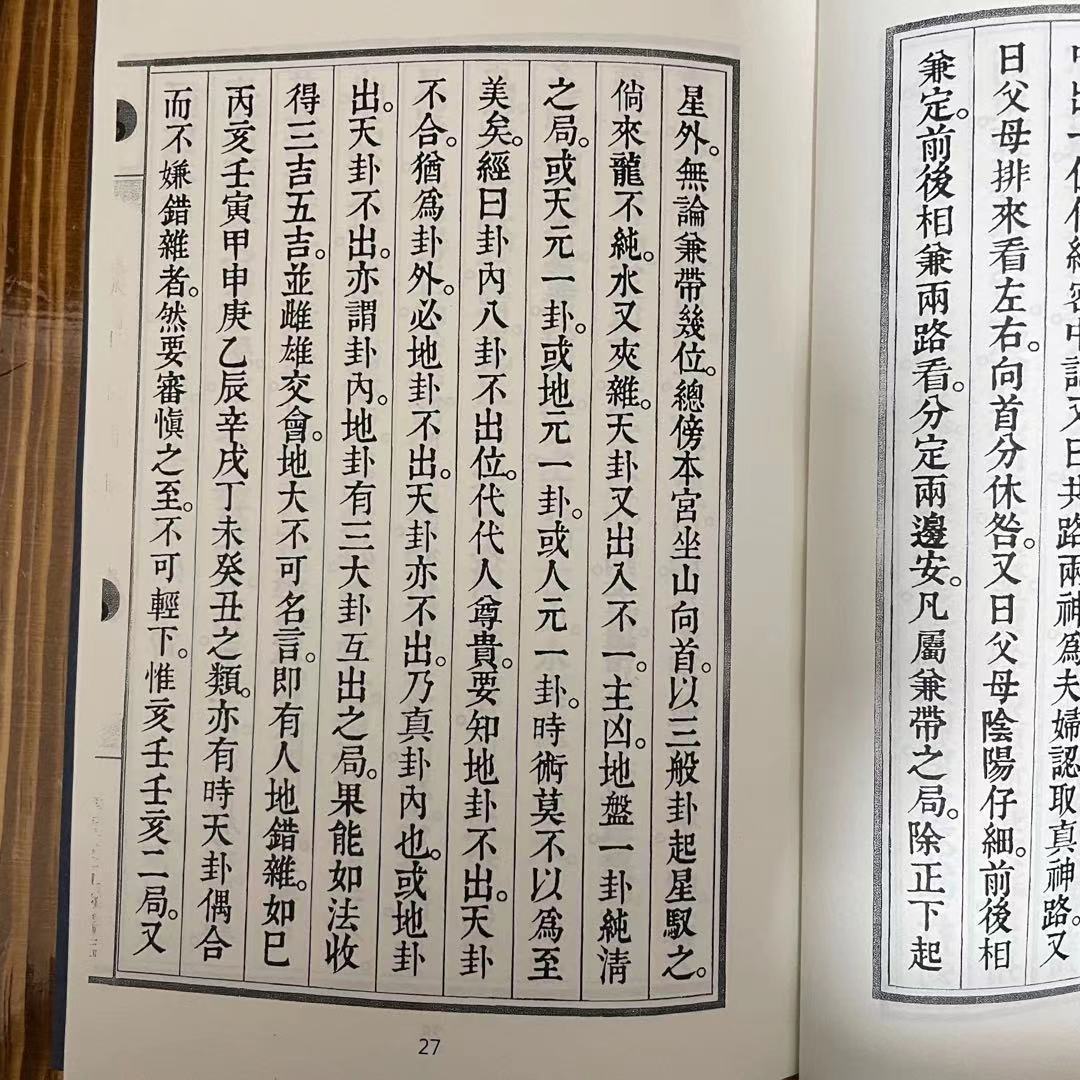 日父母排來看左右。向首分休咎。又日父母陰陽仔細。前後相
兼定。前後相兼兩路看。分定兩邊安。凡屬兼帶之局。除正下起
星外。無論兼帶幾位。總傍本宮坐山向首。以三般卦起星馭之。
倘來龍不純。水又夾雜。天卦又出入不一。主凶。地盤一卦純清
之局。或天元一卦。或地元一卦。或人元一卦。時術莫不以為至
美矣。經曰卦內八卦不出位。代代人尊貴。要知地卦不出。天卦
不合。猶為卦外。必地卦不出。天卦亦不出。乃真卦內也。或地卦
出。天卦不出。亦謂卦內。地卦有三大卦互出之局。果能如法收
得三吉五吉。並雌雄交會。地大不可名言。即有人地錯雜。如巳
丙亥壬寅甲申庚乙辰辛戌丁未癸丑之類。亦有時天卦偶合
而不嫌錯雜者。然要審慎之至。不可輕下。惟亥壬壬亥二局。又
27